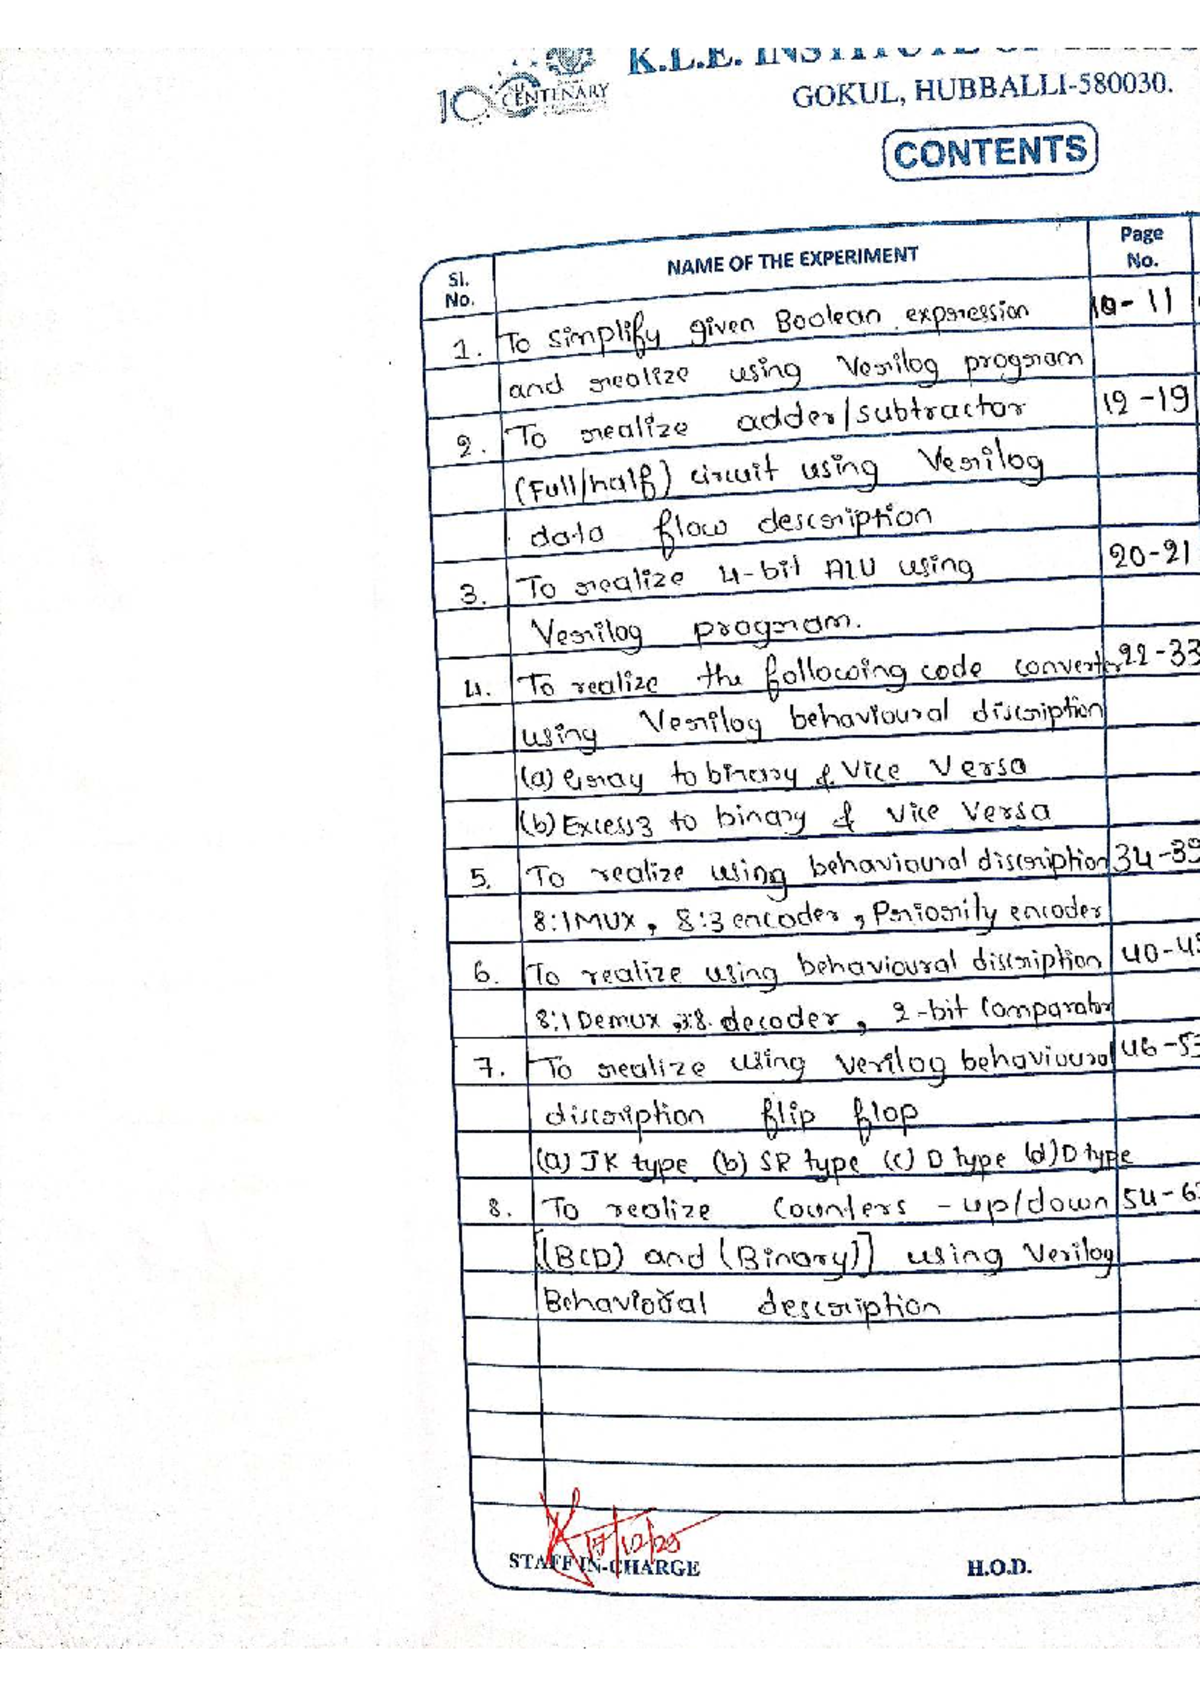 K.L.E. INSTITUTE OF
CENTENARY
GOKUL, HUBBALLI-580030.
CONTENTS
Sl. No. NAME OF THE EXPERIMENT Page No.
1. To simplify given Boolean expression 10-11
and realize using Verilog program
2. To realize adder/subtractor 12-19
(Full/half) circuit using Verilog
data flow description
3. To realize 4-bit ALU using 20-21
Verilog program.
4. To realize the following code converter 22-33
using Verilog behavioural discription
(a) Gray to binary & Vice Versa
(b) Excess3 to binary & Vice Versa
5. To realize using behavioural discription 34-39
8:1 MUX, 8:3 encoder, Priority encoder
6. To realize using behavioural discription 40-45
8:1 Demux, 3:8 decoder, 2-bit Comparator
7. To realize using Verilog behavioural 46-53
discription flip flop
(a) JK type (b) SR type (c) D type (d) D type
8. To realize Counters - up/down 54-63
[(BCD) and (Binary)] using Verilog
Behavioural description
17/12/25
STAFF IN-CHARGE H.O.D.